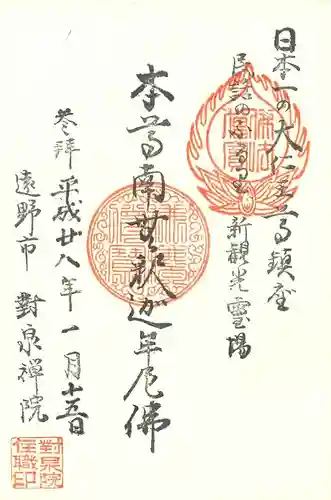 日本一の大仁王尊鎮座
民話のふる里 新観光霊場
本尊南無釈迦牟尼佛
参拝 平成廿八年一月十五日
遠野市 對泉禅院
對泉院
住職印